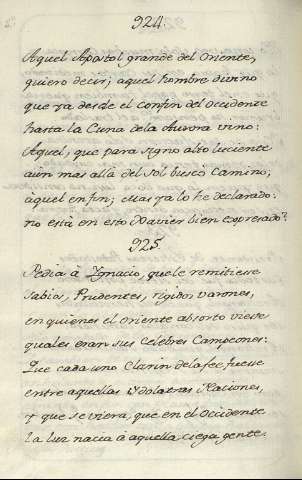 924.
Aquel Apostol grande del Oriente,
quiero decir; aquel hombre divino
que ya desde el confin del Occidente
hasta la Cuna dela Aurora vino:
Aquel, que para signo alto luciente
aun mas alla del Sol buscò Camino;
àquel enfin; mas ya lo he declarado:
no està en esto Xavier bien expresado?
925
Pedia à Ygnacio, quele remitiese
Sabios, Prudentes, rigidos varones,
en quienes el Oriente absorto viese
quales eran sus Celebres Campeones:
Que cada uno Clarin dela fee fuese
entre aquellas Ydolatras Naciones,
y que se viera, que en el Occidente
la luz nacia à aquella ciega gente.